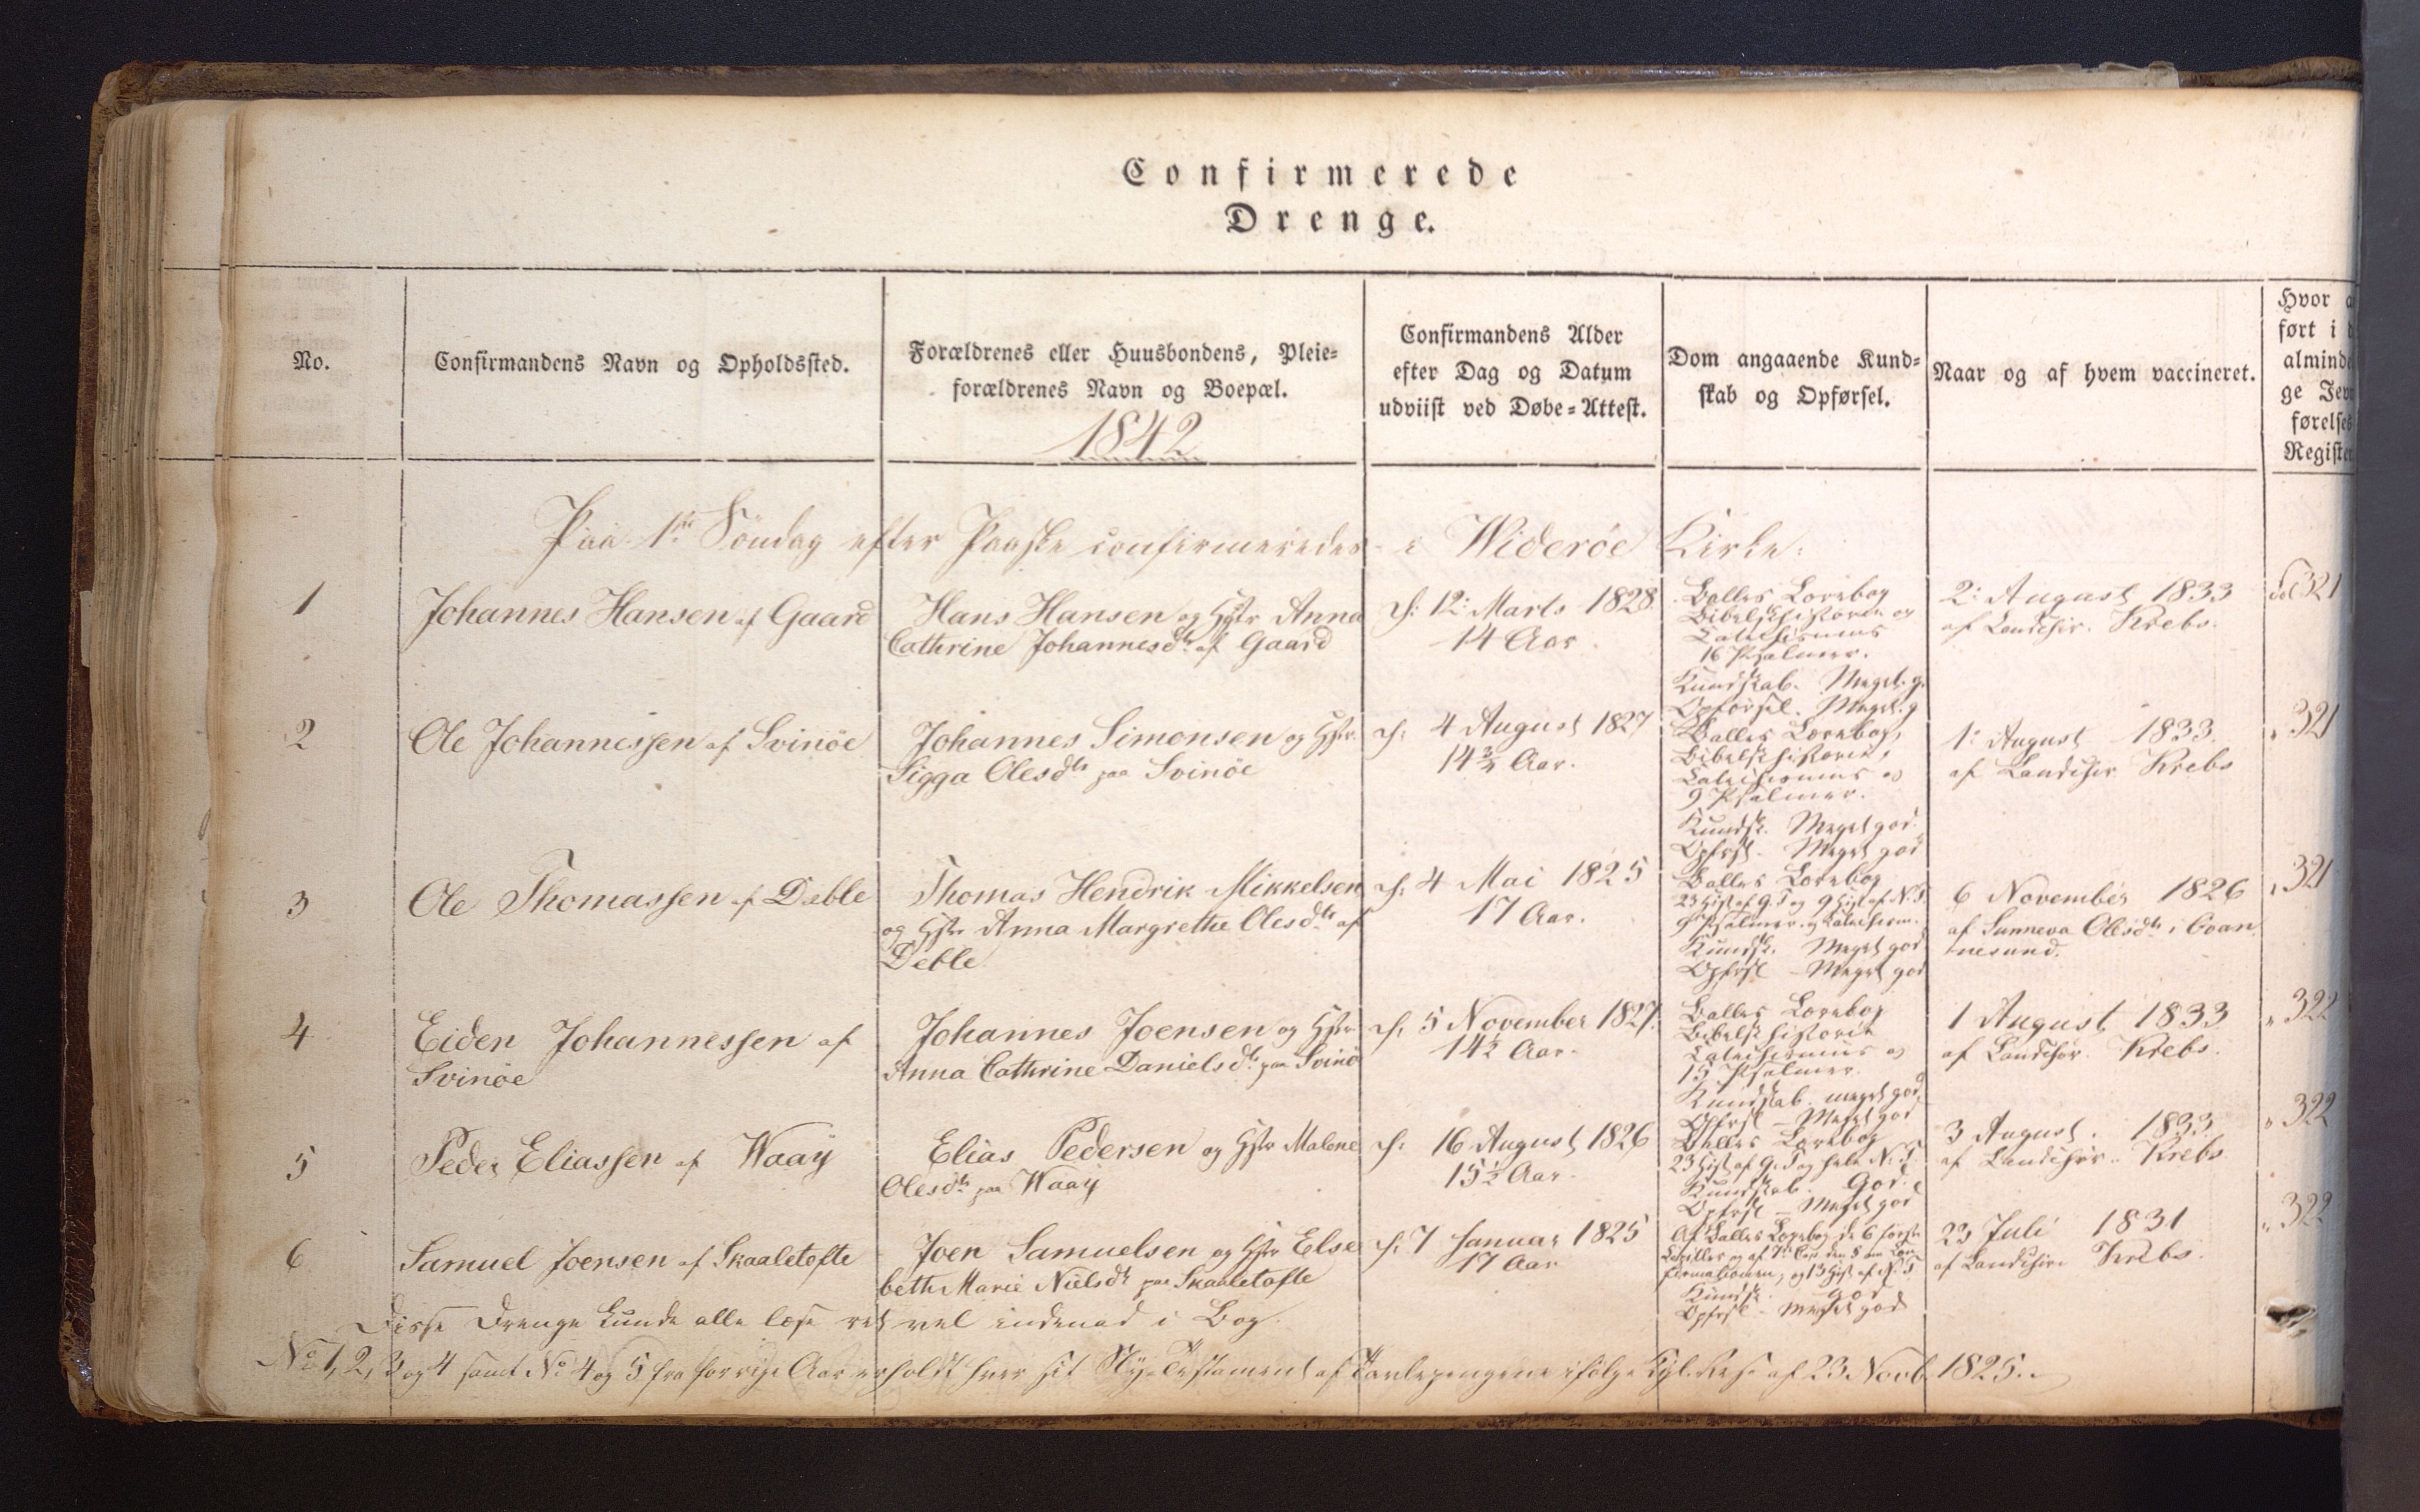 Confirmerede
Drenge.
No.
Confirmandens Navn og Opholdssted.
Forældrenes eller Huusbondens, Pleie-
forældrenes Navn og Boepæl.
Confirmandens Alder
efter Dag og Datum
udviist ved Døbe-Attest.
Dom angaaende Kund-
skab og Opførsel.
Naar og af hvem vaccineret.
Hvor
ført i
alminde
ge Jevn
førelses
Register
1842
Paa 1ste Söndag efter Paaske confirmeredes i Wideröe Kirke:
1
Johannes Hansen af Gaard
Hans Hansen og Hstr Anna
Cathrine Johannesdtr af Gaard
f: 12: Marts 1828
14 Aar.
Balles Lærebog
Bibelskhistorie og
Catechismus
16 Psalmer.
Kundskab. Meget g.
Opførsel. Meget g
2: August 1833
af Landchir. Krebs.
fol 321
2
Ole Johannessen af Svinöe
Johannes Simonsen og Hstr
Sigga Olesdtr paa Svinöe
f: 4 August 1827
14 3/4 Aar.
Balles Lærebog,
Bibelskhistorie,
Catechismus og
9 Psalmer.
Kundsk. Meget god.
Opførsl. Meget god
1: August 1833.
af Landchir Krebs
" 321
3
Ole Thomassen af Deble
Thomas Hendrik Mikkelsen
og Hstr Anna Margrethe Olesdtr af
Deble
f: 4 Mai 1825
17 Aar.
Balles Lærebog
23 Hist af G. T og 9 Hist af N. T.
9 Psalmer. og Catechism.
Kundsk. Meget god
Opførsl - Meget god
6 November 1826
af Sunneva Olesdtr i Qvan
nesund.
" 321
4
Eiden Johannessen af
Svinöe
Johannes Joensen og Hstr
Anna Cathrine Danielsdtr paa Svinö
f: 5 November 1827.
14½ Aar.
Balles Lærebog
Bibelskhistorie
Catechismus og
15 Psalmer.
Kundskab. meget god,
Opførsl - Meget god
1 August 1833
af Landchir. Krebs.
" 322
5
Peder Eliassen af Waaÿ
Elias Pedersen og Hstr Malene
Olesdtr paa Waaÿ
f: 16 August 1826
15½ Aar.
Balles Lærebog
23 Hist af G. T og hele N. T.
Kundskab. God.
Opførsl - Meget god
3 August. 1833.
af Landchir. Krebs.
" 322
6
Samuel Joensen af Skaaletofte
Joen Samuelsen og Hstr Else
beth Marie Nielsdtr paa Skaaletofte
f: 7 Januar 1825
17 Aar
Af Balles Lærebog de 6 første
Capitler og af 7de Cap. den 5 om Con
firmationen, og 13 Hist af N. T
Kundsk. God
Opførsl - Meget god
23 Juli 1831
af Landchir. Krebs.
" 322
Disse Drenge kunde alle læse ret vel indenad i Bog.
No 1, 2, 3 og 4 samt No 4 og 5 fra forrige Aar erholdt hver sit Ny-Testament af Tavlepengene ifølge Kgl. Res. af 23 Novb. 1825.